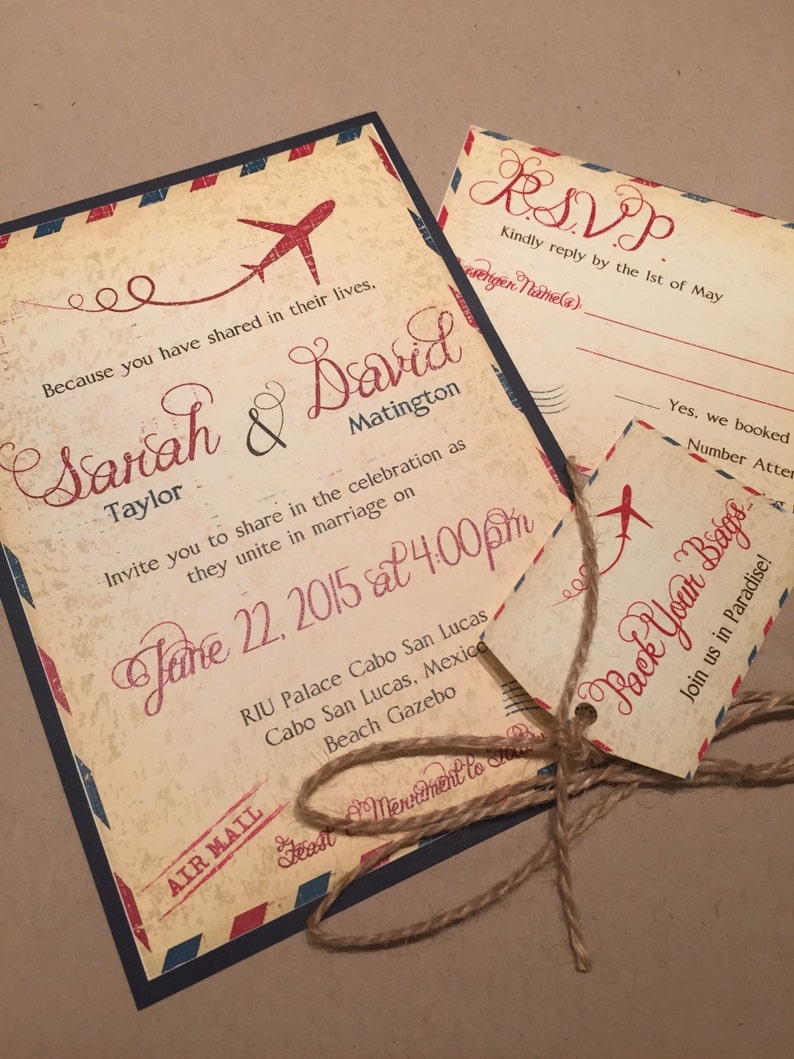 Because you have shared in their lives,
Sarah & David
Taylor Matington
Invite you to share in the celebration as
they unite in marriage on
June 22, 2015 at 4:00pm
RIU Palace Cabo San Lucas
Cabo San Lucas, Mexico
Beach Gazebo
Feast & Merriment to
AIR MAIL
R.S.V.P.
Kindly reply by the 1st of May
Name(s):
Yes, we booked
Number
Pack Your Bags...
Join us in Paradise!